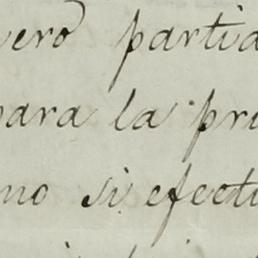 vero partia
para la pri
mo si efectu